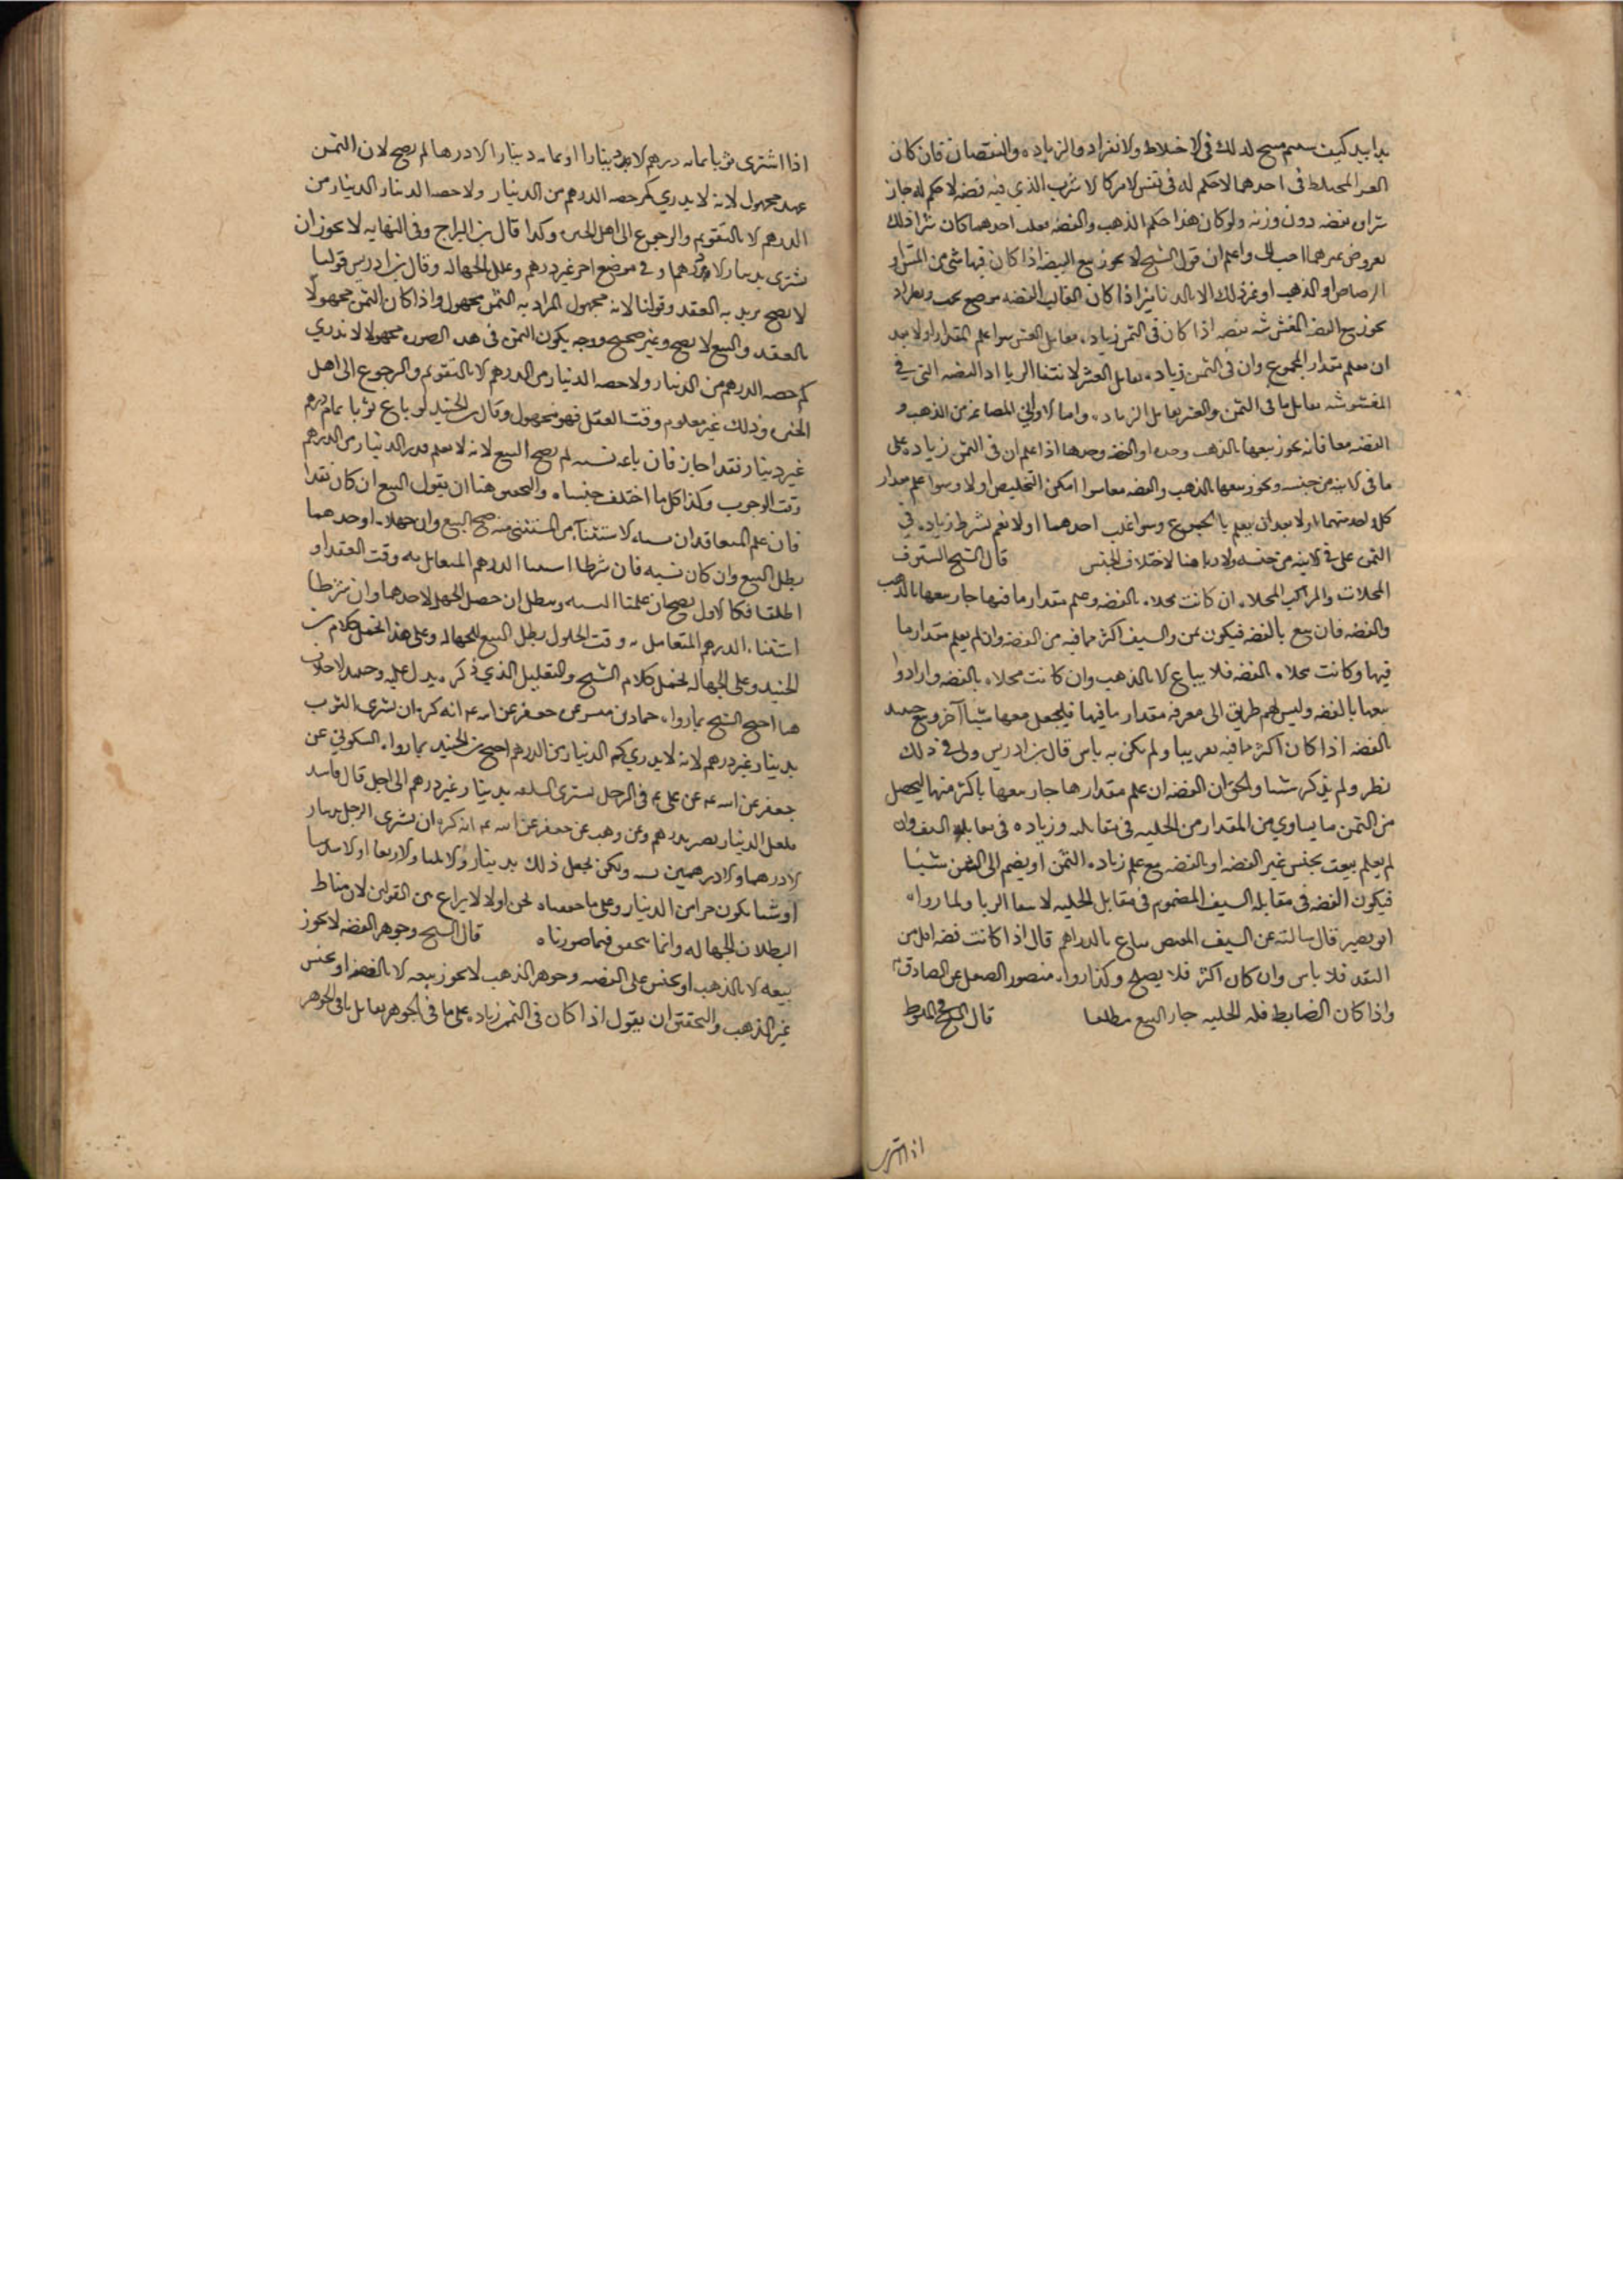 يدا بيد كيف شئتم صح لذلك في الاختلاط والانفراد والزيادة والنقصان فان كان
المختلط في احدهما لا حكم له في نفس الامر كالاشرب الذي فيه فضه لا حكم له جاز
شراوه بفضه دون وزنه ولو كان هذا حكم الذهب والفضه بغلب احدهما كان شرا ذلك
بعروض غيرهما احب الي واعلم ان قول الشيخ لا يجوز بيع الفضه اذا كان فيها شي من المس او
الرصاص او الذهب او غير ذلك الا بالدنانير اذا كان الغالب الفضه موضع بحث
يجوز بيع الفضه المغشوشه بفضه اذا كان في الثمن زياده يقابل الغش سوا علم المقدار او لا بعد
ان يعلم مقدار المجموع وان في الثمن زياده يقابل الغش لانتفا الربا اذ الفضه التي في
المغشوشه يقابل ما في الثمن والغش يقابل الزياده واما الاواني المصاغه من الذهب و
الفضه معا فانه يجوز بيعها بالذهب وحده او الفضه وحدها اذا علم ان في الثمن زياده على
ما في الانيه من جنسه ويجوز بيعها بالذهب والفضه معا سوا امكن التخليص او لا وسوا علم مقدار
كل واحد منهما او لا بعد ان يعلم المجموع وسوا غلب احدهما او لا نعم يشترط زياده في
الثمن على في الانيه من جنسه ولا ربا هنا لاختلاف الجنس قال الشيخ السيوف
المحلاة والمراكب المحلاه ان كانت محلاه بالفضه وعلم مقدار ما فيها جاز بيعها بالذهب
والفضه فان بيع بالفضه فيكون ثمن السيف اكثر مما فيه من الفضه وان لم يعلم مقدار ما
فيها وكانت محلاه بالفضه فلا يباع الا بالذهب وان كانت محلاه بالفضه وارادوا
بيعها بالفضه وليس لهم طريق الى معرفه مقدار ما فيها فليجعل معها شيئا آخر وبيع حينئذ
بالفضه اذا كان اكثر مما فيه تقريبا ولم يكن به باس قال بن ادريس ولي في ذلك
نظر ولم يذكر شيئا والحق ان الفضه ان علم مقدارها جاز بيعها باكثر منها ليحصل
من الثمن ما يساوي من المقدار من الحليه في مقابله وزياده في مقابله السيف وان
لم يعلم بيعت بجنس غير الفضه او بالفضه مع علم زياده الثمن او يضم الى الثمن شيئا
فيكون الفضه في مقابله السيف المضموم في مقابل الحليه لانتفا الربا ولما رواه
ابو بصير قال سالته عن السيف المفضض يباع بالدراهم قال اذا كانت فضه اقل من
النقد فلا باس وان كان اكثر فلا يصلح وكذا رواه منصور الصيقل عن الصادق ع
واذا كان الضابط قله الحليه جاز البيع مطلقا قال الشيخ في المبسوط
اذا اشترى
اذا اشترى ثوبا بمائه درهم الا دينارا او بمائه دينار الا درهما لم يصح لان الثمن
مجهول لانه لا يدري كم حصه الدرهم من الدينار ولا حصه الدينار من
الدرهم الا بالتقويم والرجوع الى اهل الخبره وكذا قال بن البراج وفي النهايه لا يجوز ان
يشتري بدينار الا درهما وفي موضع اخر غير درهم وعلل بالجهاله وقال بن ادريس قولنا
لا يصح يريد به العقد وقولنا لانه مجهول المراد به الثمن مجهول واذا كان الثمن مجهولا
فالعقد والبيع لا يصح وغير صحيح ووجه يكون الثمن في هذه الصوره مجهولا لا ندري
كم حصه الدرهم من الدينار ولا حصه الدينار من الدرهم الا بالتقويم والرجوع الى اهل
الخبره وذلك غير معلوم وقت العقد فهو مجهول وقال بن الجنيد لو باع ثوبا بمائه درهم
غير دينار نقدا جاز فان باعه نسيه لم يصح البيع لانه لا يعلم قدر الدينار من الدرهم
وقت الوجوب وكذا كل ما اختلف جنساه والتحقيق هنا ان يقول البيع ان كان نقدا
فان علم المتعاقدان نسبه الاستثناء من المستثنى منه صح البيع وان جهلاه او احدهما
بطل البيع وان كان نسيه فان شرطا استثنا الدرهم المتعامل به وقت العقد او
اطلقا فكالاول يصح ان علمنا النسبه ويبطل ان حصل الجهل لاحدهما وان شرطا
استثناء الدرهم المتعامل به وقت الحلول بطل البيع للجهاله وعلى هذا يحمل كلام بن
الجنيد وعلى الجهاله يحمل كلام الشيخ والتعليل الذي ذكره يدل عليه وحينئذ لا خلاف
هنا احتج الشيخ بما رواه حماد بن ميسر عن جعفر عن ابيه ع انه كره ان يشتري الثوب
بدينار غير درهم لانه لا يدري كم الدينار من الدرهم احتج بن الجنيد بما رواه السكوني عن
جعفر عن ابيه عن علي ع في الرجل يشتري السلعه بدينار غير درهم الى اجل قال فاسد
فلعل الدينار يصير بدرهم وعن وهب عن جعفر عن ابيه ع انه كره ان يشتري الرجل بدينار
الا درهما والا درهمين نسيه ولكن يجعل ذلك بدينار الا ثلثا والا ربعا او الا سدسا
او شيئا يكون جزا من الدينار وعلى ما حققناه نحن اولا لا نزاع بين القولين لان مناط
البطلان الجهاله وانما يتحقق فيما صورناه قال الشيخ وجوهر الفضه لا يجوز
بيعه الا بالذهب او بجنس غير الفضه وجوهر الذهب لا يجوز بيعه الا بالفضه او بجنس
غير الذهب والتحقيق ان يقول اذا كان في الثمن زياده على ما في الجوهر يقابل باقي الجوهر